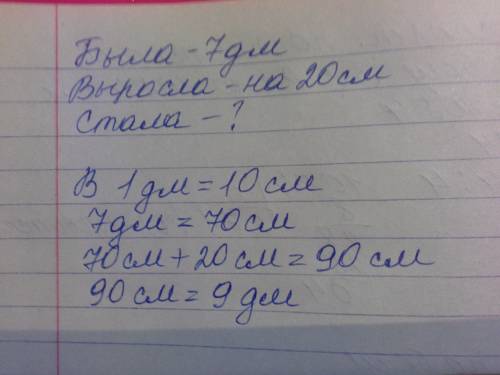 Была - 7дм
Выросла - на 20см
Стала - ?
В 1дм = 10см
7дм = 70см
70см + 20см = 90см
90см = 9дм